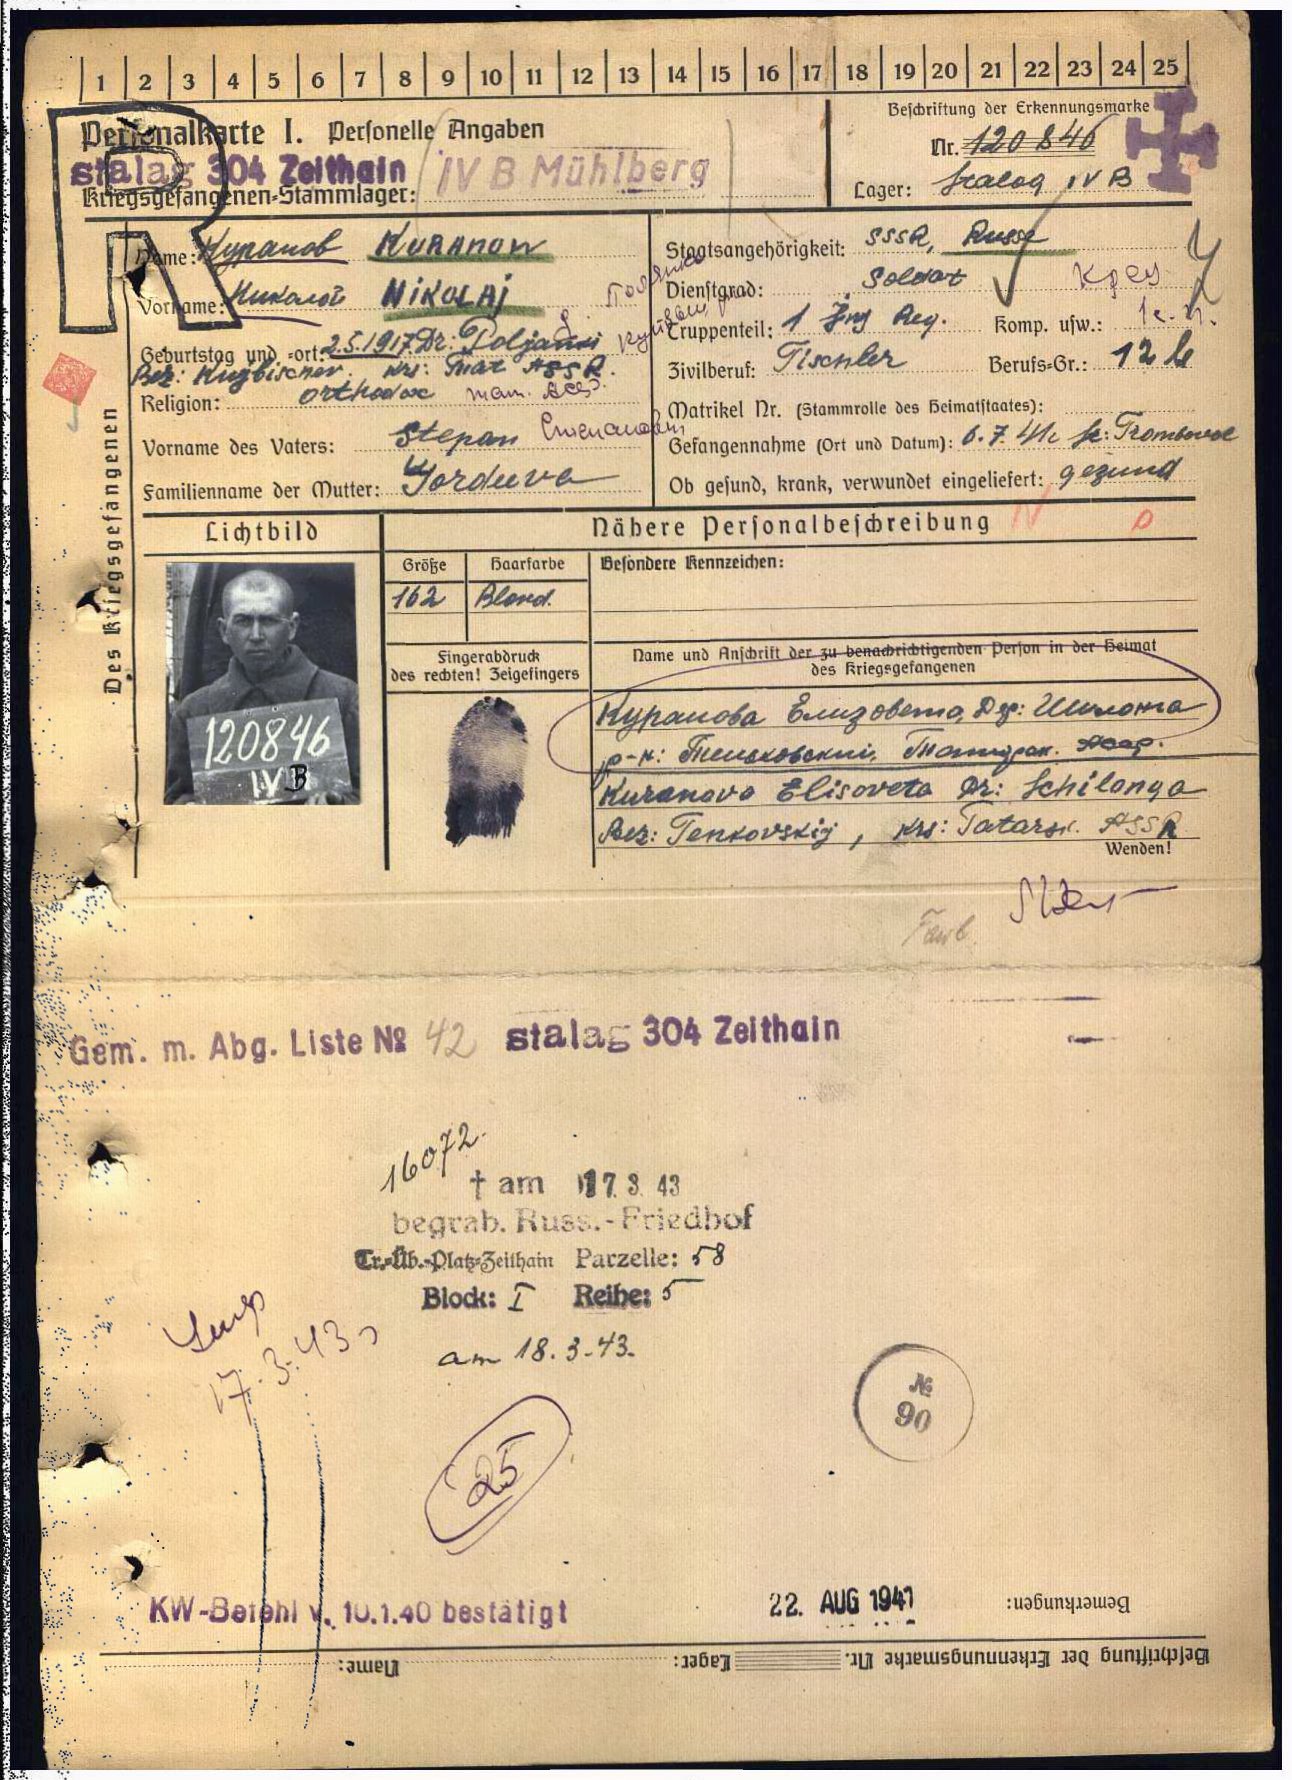 1 2 3 4 5 6 7 8 9 10 11 12 13 14 15 16 17 18 19 20 21 22 23 24 25
Personalkarte I. Personelle Angaben
Beschriftung der Erkennungsmarke
Nr. 120846
stalag 304 Zeithain
IV B Mühlberg
Kriegsgefangenen-Stammlager:
Lager: Stalag IV B
R
Des Kriegsgefangenen
Name: Куранов KURANOW
Vorname: Николай NIKOLAJ
Geburtstag und -ort: 2.5.1917 Dr: Poljanki
Bez: Kujbischev Krs: Tat ASSR.
Religion: orthodox
Vorname des Vaters: Stepan
Familienname der Mutter:
Staatsangehörigkeit: SSSR, Russe
Dienstgrad: Soldat
Truppenteil: 1 Jnf Reg. Komp. usw.:
Zivilberuf: Tischler Berufs-Gr.: 12
Matrikel Nr. (Stammrolle des Heimatstaates):
Gefangennahme (Ort und Datum): 6.7.41
Ob gesund, krank, verwundet eingeliefert: gezund
Lichtbild
Nähere Personalbeschreibung
Größe Haarfarbe Besondere Kennzeichen:
162 Blond.
120846
IV B
Fingerabdruck
des rechten! Zeigefingers
Name und Anschrift der zu benachrichtigenden Person in der Heimat
des Kriegsgefangenen
Куранова Елизовета, Дер: Шиланга
р-н: Теньковский, Татарск. АССР.
Kuranova Elisoveta Dr: Schilanga
Bez: Tenkovskij, Krs: Tatarsk. ASSR
Wenden!
Gem. m. Abg. Liste № 42 stalag 304 Zeithain
16072.
† am 17. 3. 43
begrab. Russ.-Friedhof
Tr.-Üb.-Platz-Zeithain Parzelle: 58
Block: I Reihe: 5
am 18.3.43.
17.3.43
25
№
90
KW-Befehl v. 10.1.40 bestätigt
22. AUG 1941
Bemerkungen:
Beschriftung der Erkennungsmarke Nr. Lager: Name: